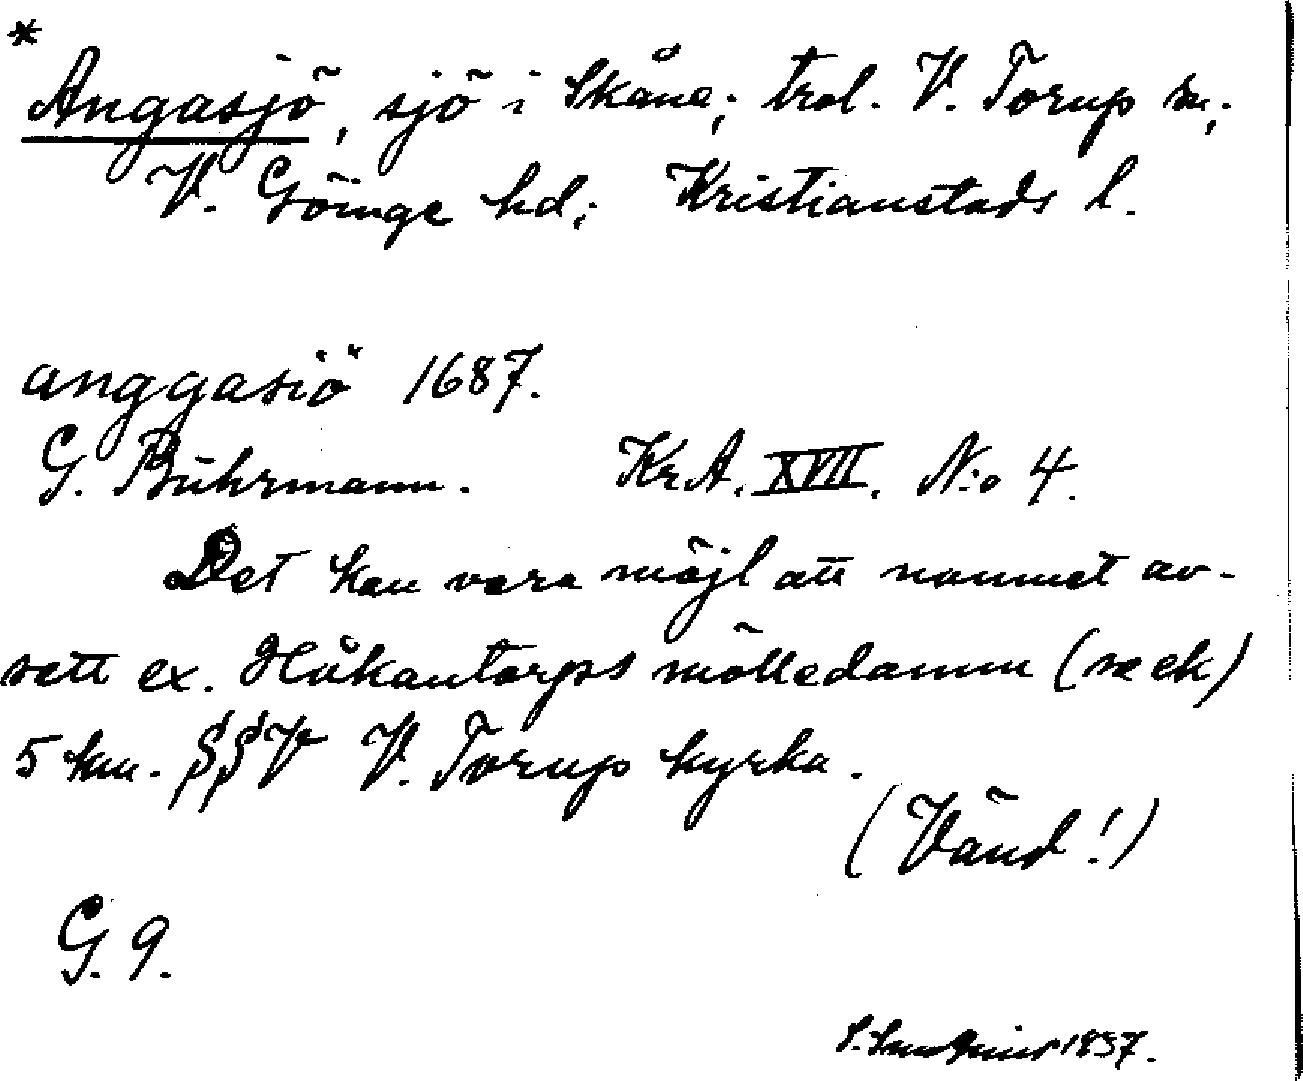 *
Angasjö, sjö i Skåne; trol. V. Torup sn;
V. Göinge hd; Kristianstads l.
anggasiö 1687.
G. Bührmann. KrA. XVII. N:o 4.
Det kan vara möjl att namnet av-
sett ex. Håkantorps mölledamm (se ek)
5 km. SSV V. Torup kyrka.
(Vänd!)
G. 9.
1937.